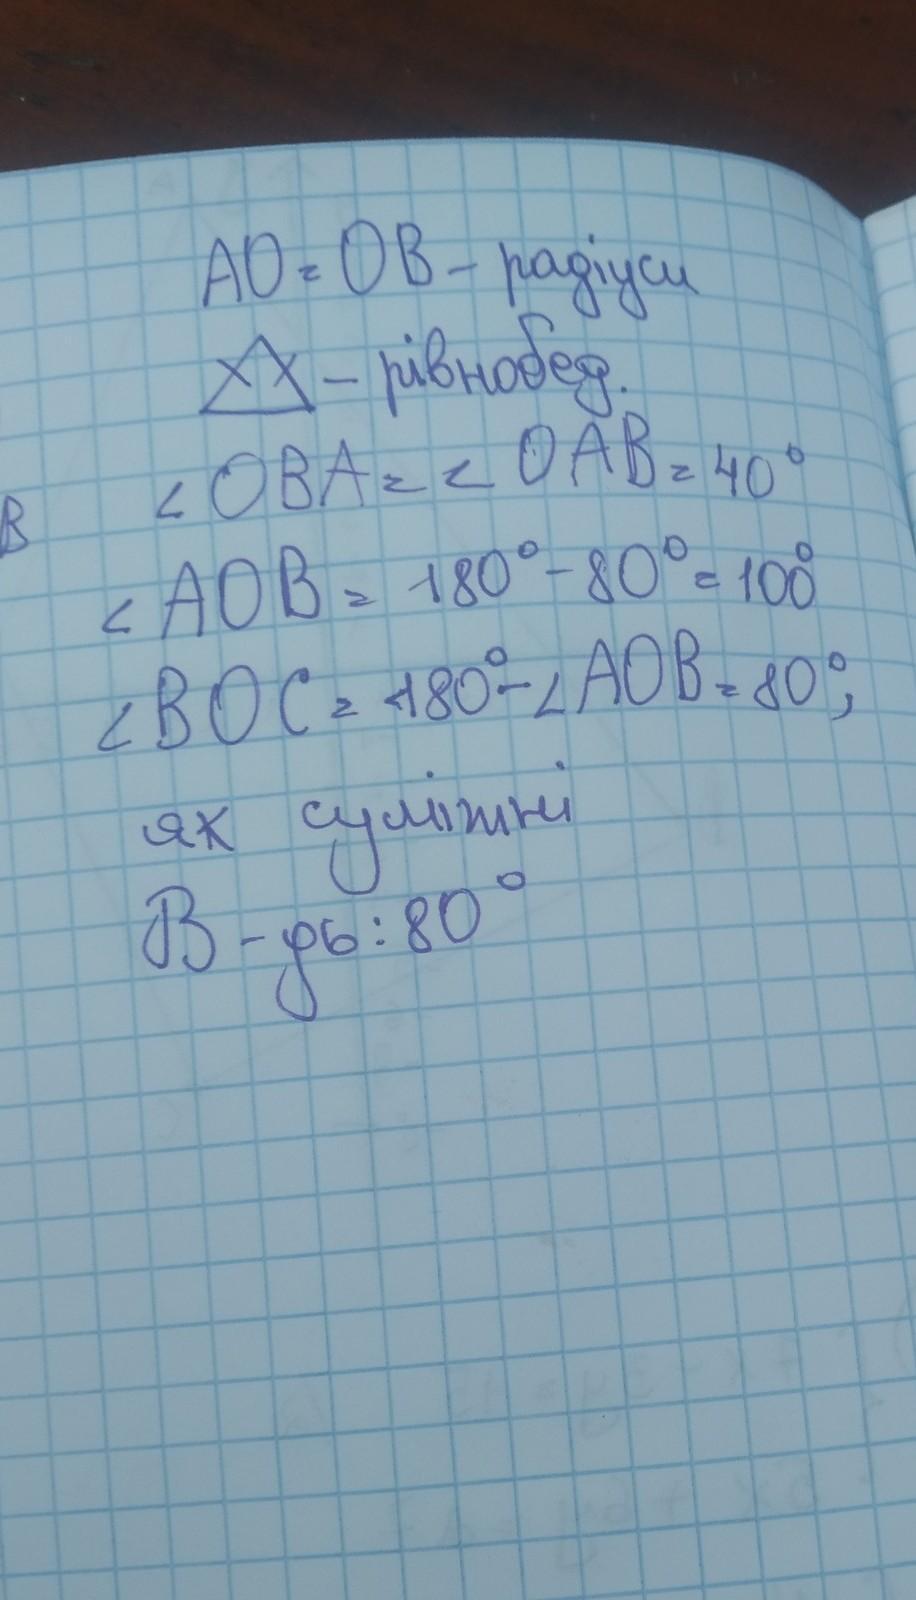 AO = OB - радіуси
△ - рівнобед.
∠OBA = ∠OAB = 40°
B
∠AOB = 180° - 80° = 100°
∠BOC = 180° - ∠AOB = 80°;
як суміжні
В-дь: 80°